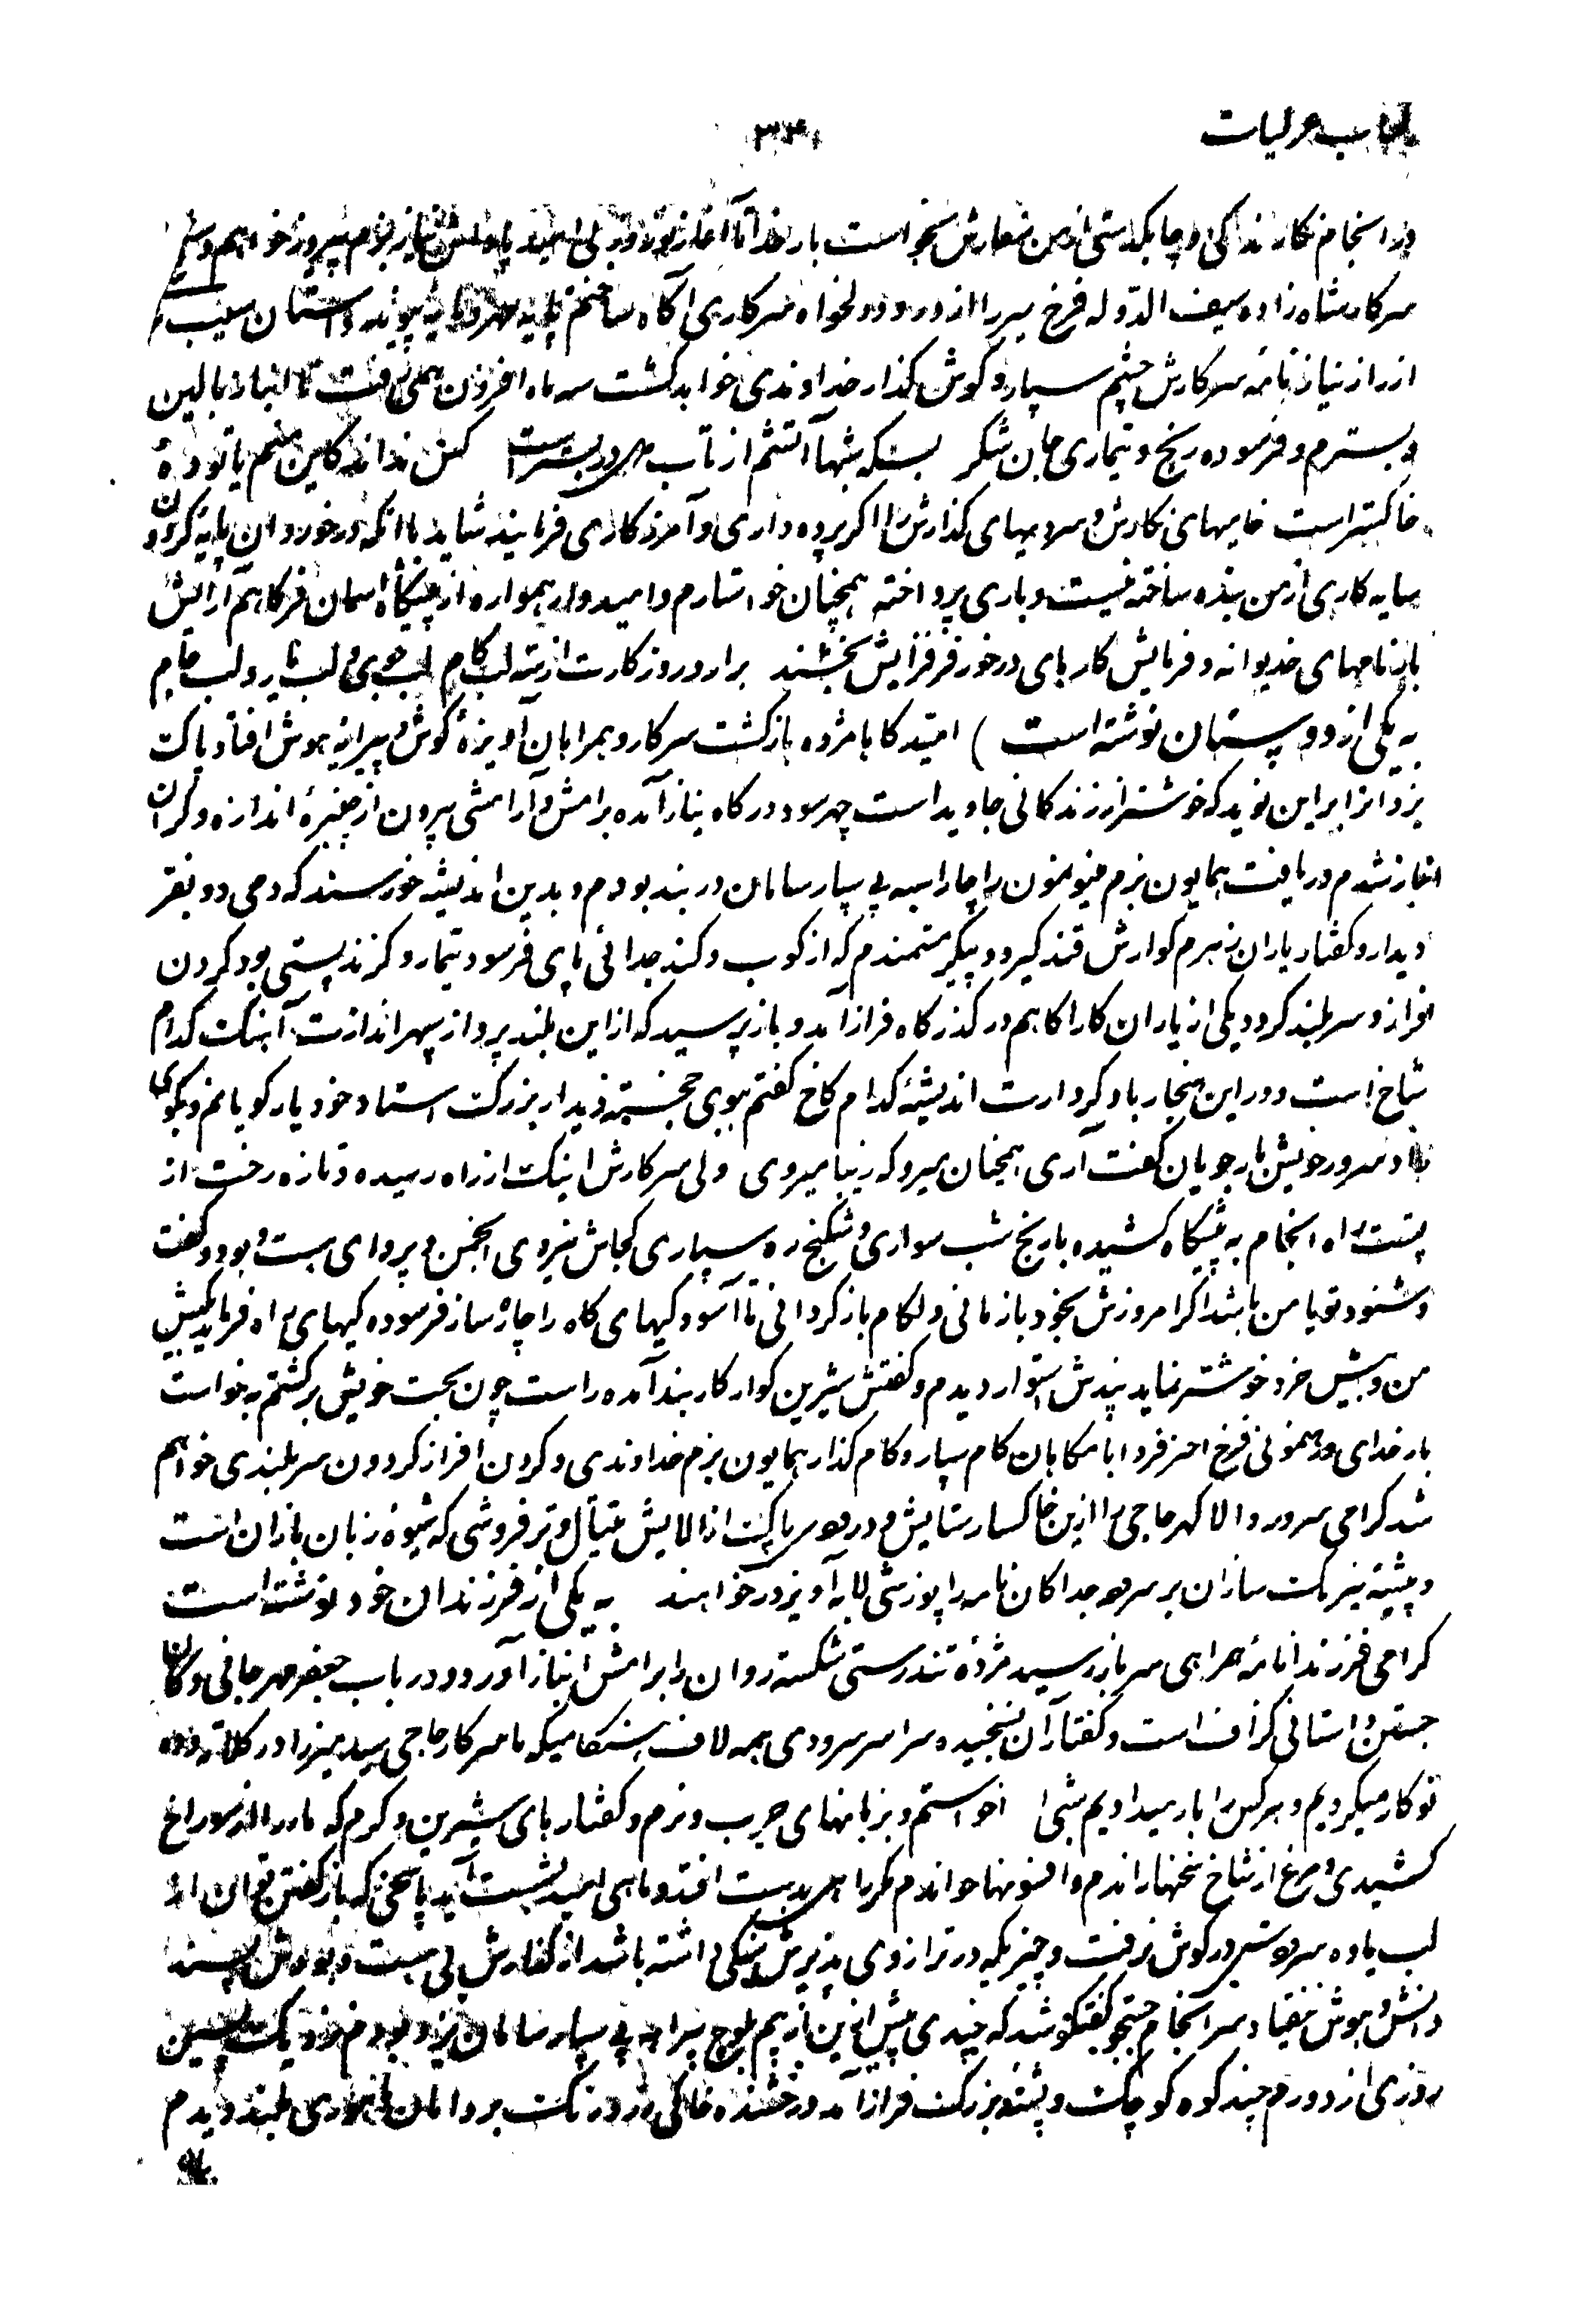 ۳۴۰
در انجام نگارندگی و چابکدستی از من سفارش نخواست بار خدا تا آغاز نوروز بی امید پاداش نیاز بزم پیروز خواهم و سلم
سرکار شاهزاده سیف الدوله فرخ سیر را از درود و دلخواه سرکاری آگاه ساختم پیوند داستان سیب
از راز نیازنامه سرکارش چشم سپار و گوش گذار خداوندی خواهد گشت سه ماه افزون همی رفت تا انباز بالین
و بسترم و فرسوده رنج و تیماری جان شکر بسکه شبها آتشم از تاب در بستر است کس نداند کاین منم یا توده
خاکستر است خامیهای نگارش و سردیهای گذارش را اگر پرده داری و آمرزگاری فرمایند شاید با آنکه در خورد آن پایه گردون
سایه کاری از من بنده ساخته نیست و باری پرداخته همچنان خواستارم و امیدوار همواره از پیشگاه آسمان فرگاهم آرایش
باز نامهای خدیوانه و فرمایش کارهای در خور فر فزایش بخشند برار در روزگارت از پته لب کام لب جوی و لب یار و لب جام
به یکی از دوستان نوشته است) امیدگاها مژده بازگشت سرکار و همراهان آویزه گوش و پیرایه هوش افتاد پاک
یزدانرا براین نوید که خوشتر از زندگانی جاوید است چهر سود درگاه نیاز آمده برامش و آرامشی بیرون از چنبره اندازه و گران
انباز شدم دریافت همایون بزم مینومنون را چار اسبه پی سپار سامان در بند بودم و بدین اندیشه خورسند که دمی دو بفر
دیدار و گفتار یاران زهرم گوارش قند گیرد و پیکر مستمندم که از کوب و کند جدائی پای فرسود تیمار و گزند پستی بود گردن
افراز و سربلند گردد یکی از یاران کارآگاهم در گذرگاه فراز آمد و باز پرسید که از این بلند پرواز سپهر اندازت آهنگ کدام
شاخ است و در این هنجار باد کردارت اندیشه کدام کاخ گفتم ببوی خجسته دیدار بزرگ استاد خود یار گویانم و بکوی
راد سرور خویش بار جویان گفت آری همچنان میرو که زیبا میروی ولی سرکارش اینک از راه رسیده و تازه رخت از
پشت راه انجام به پیشگاه کشیده با رنج شب سواری و شکنج ره سپاری کجاش نیروی انجمن و پروای بست و بود و گفت
و شنود تو یا من باشد اگر امروزش بخود بازمانی و لگام باز گردانی تا آسودگیهای گاه را چاره ساز فرسودگیهای راه فرماید کیش
من و بیش خرد خوشتر نماید پندش استوار دیدم و گفتش شیرین گوار کار بند آمده راست چون بخت خویش برگشتم به خواست
بار خدای و رهنمونی فرخ اختر فردا بامگاهان گام سپار و کام گذار همایون بزم خداوندی و گردن افراز گردون سربلندی خواهم
شد گرامی سرور والا گهر حاجی را ازین خاکسار ستایش و درودی پاک از آلایش تیتال و تر فروشی که شیوه زبان بازان است
و پیشه نیرنگ سازان بر سرود جداگان نامه را پوزشی لابه آویز در خواهند به یکی از فرزندان خود نوشته است
گرامی فرزندا نامه همراهی سرباز رسید مژده تندرستی شکسته روان را برامش انباز آورد و در باب جعفر مهرجانی و کان
جستن داستانی گزاف است و گفتار آن نسنجیده سراسر سرودی همه لاف هنگامیکه ما سرکار حاجی سید میرزا در کلاته
نو کار میکردیم و هر کس را بار میدادیم شبی خواستم و بزبانهای چرب و نرم و گفتارهای شیرین و گرم که مار را از سوراخ
کشیدی و مرغ از شاخ سخنها راندم و افسونها خواندم مگر بدست افتد و ماهی امید بشست آید پاسخی که باز گفتن توان از
لب یاوه سرودش در گوش نرفت و چیزیکه در ترازوی پذیرش سنگی داشته باشد از گفارش بی بست و بودش پسند
دانش و هوش نیفتاد سرانجام جستجو و گفتگو شد که چندی پیش ازین از بیم بلوچ بیراهه پی سپار سامان یزد بودم نزدیک پسین
روزی از دورم چند کوه کوچک و پشته بزرگ فراز آمد و درخشنده خاکی زرد رنگ بر دامان بلند دیدم